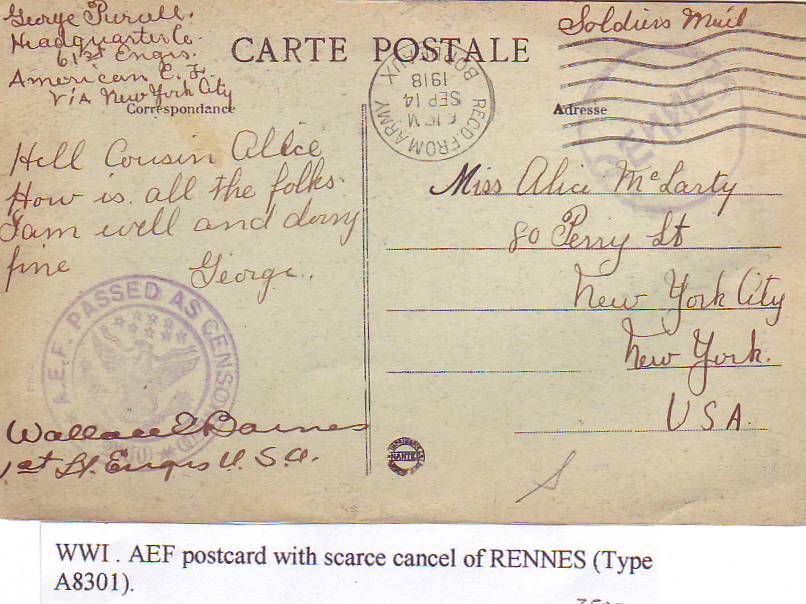 George Purcell
Headquarters Co.
61st Engrs.
American E. F.
Via New York City
CARTE POSTALE
Soldiers Mail
Correspondance
Adresse
REC'D. FROM ARMY
6 PM
SEP 14
1918
BORDEAUX
RENNES
Hell Cousin Alice
How is all the folks.
I am well and doing
fine
George.
Miss Alice McLarty
80 Perry St
New York City
New York.
USA.
A.E.F. PASSED AS CENSORED
Wallace Barnes
1st Lt. Engrs U.S.A.
NANTES
WWI. AEF postcard with scarce cancel of RENNES (Type
A8301).